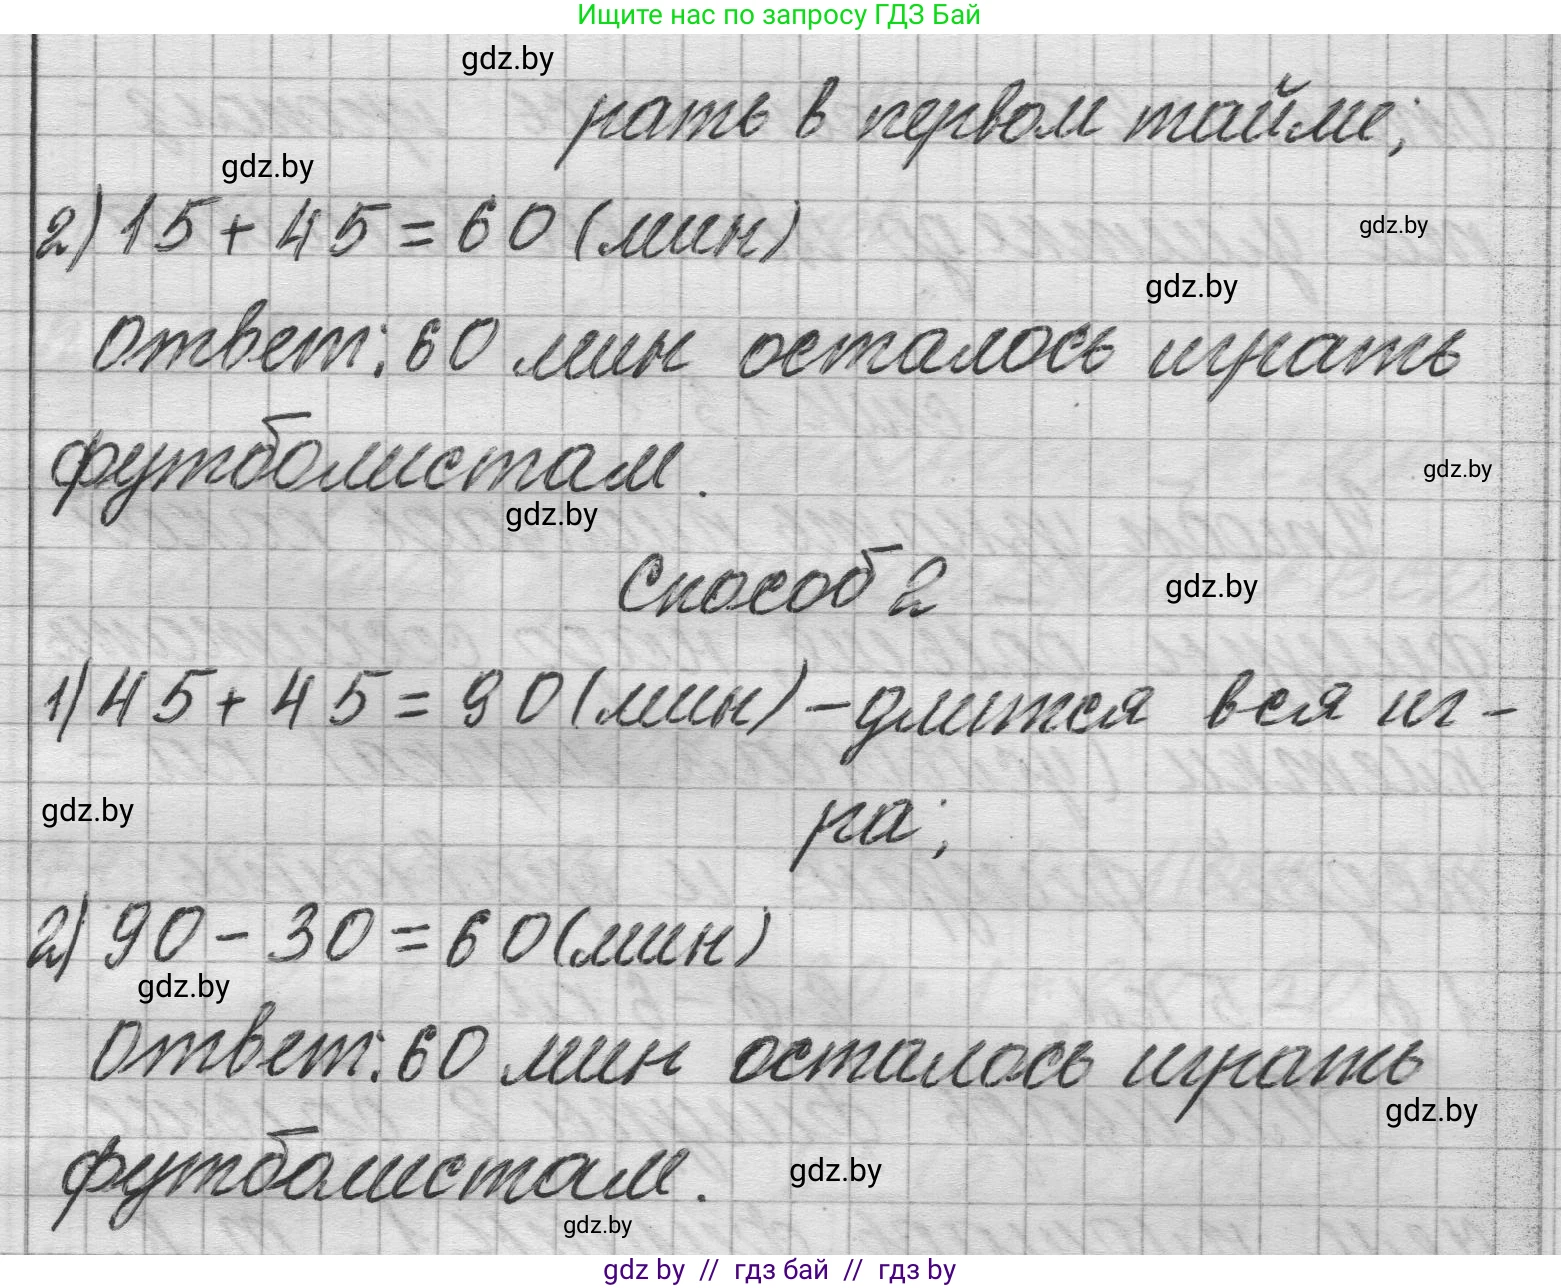 Ищите нас по запросу ГДЗ Бай
gdz.by
рать в первом тайме;
gdz.by
2) 15 + 45 = 60 (мин)
gdz.by
gdz.by
ответ: 60 мин осталось играть
футболистам.
gdz.by
gdz.by
Способ 2
gdz.by
1) 45 + 45 = 90 (мин) - длится вся иг-
gdz.by
ра;
2) 90 - 30 = 60 (мин)
gdz.by
ответ: 60 мин осталось играть
gdz.by
футболистам.
gdz.by
gdz.by
gdz by // гдз бай // гдз by